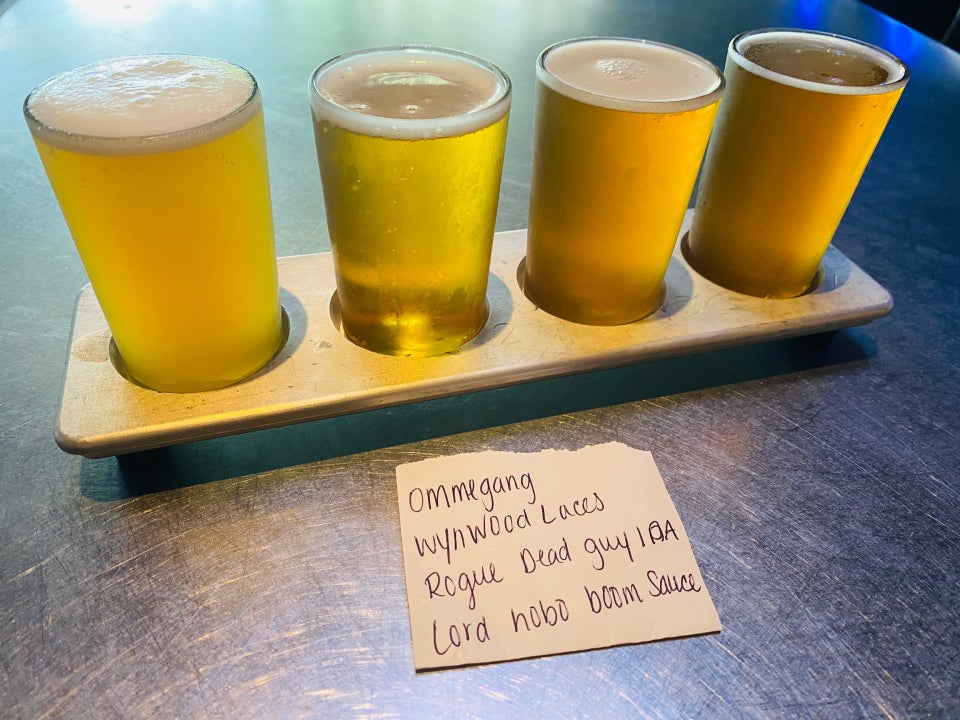 Ommegang
Wynwood Laces
Rogue Dead guy IPA
Lord nobo boom Sauce